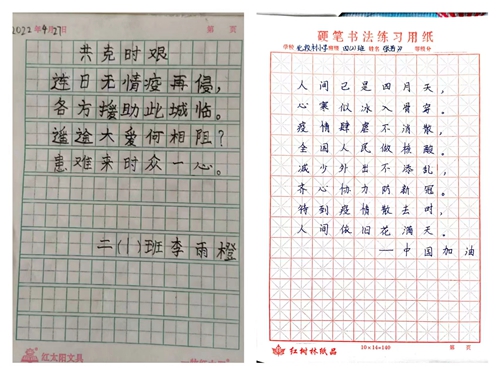 2022年4月27日 第 页
共克时艰
连日无情疫再侵,
各方援助此城临。
遥途大爱何相阻?
患难来时众一心。
二(1)班李雨橙
红太阳文具
硬笔书法练习用纸
人间已是四月天,
心寒似冰入骨穿。
疫情肆虐不消散,
全国人民做核酸。
减少外出不添乱,
齐心协力防新冠。
待到疫情散去时,
人间依旧花满天。
——中国加油
红树林纸品
10×14=140
第 页